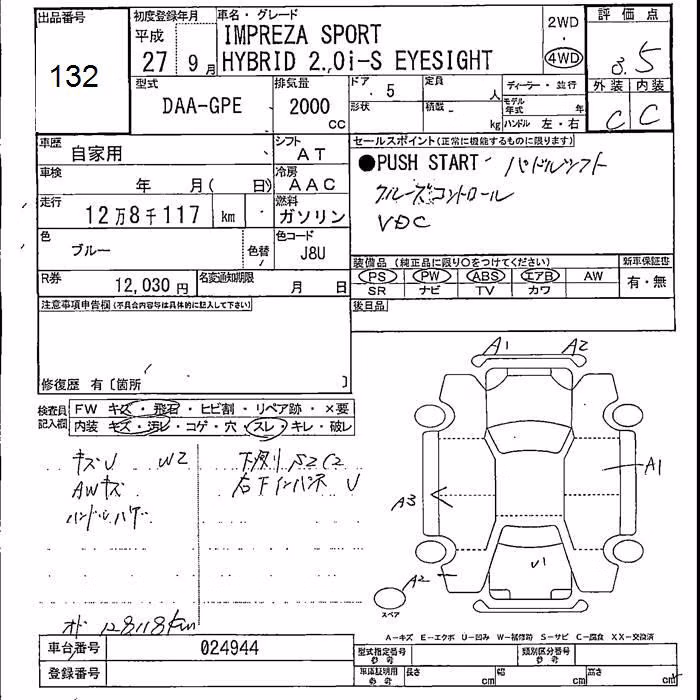 出品番号
132
初度登録年月
平成
27 9月
車名・グレード
IMPREZA SPORT
HYBRID 2.0i-S EYESIGHT
2WD
・
4WD
評価点
3.5
外装 内装
C C
型式
DAA-GPE
排気量
2000
cc
ドア 5
形状
定員
人
積載
kg
ディーラー・並行
モデル年式 年
ハンドル 左・右
車歴
自家用
シフト
AT
車検
年 月( 日)
冷房
AAC
走行
12万8千117 km
燃料
ガソリン
色
ブルー
色替
色コード
J8U
R券
12,030円
名変通知期限
月 日
セールスポイント(正常に機能するものに限ります)
●PUSH START パドルシフト
クルーズコントロール
VDC
装備品(純正品に限り○をつけてください)
PS PW ABS エアB AW
SR ナビ TV カワ
新車保証書
有・無
後日品
注意事項申告欄(不具合内容等は具体的に記入して下さい)
修復歴 有〔箇所 〕
検査員記入欄
FW キズ・飛石・ヒビ割・リペア跡・×要
内装 キズ・汚レ・コゲ・穴・スレ・キレ・破レ
キズU W2
AWキズ
ハンドルハゲ
下廻りS2C2
右下インパネ U
オド 128118km
A1 A2
A1
A3
A2
U1
スペア
A-キズ E-エクボ U-凹み W-補修跡 S-サビ C-腐食 XX-交換済
車台番号
024944
登録番号
型式指定番号
参考
類別区分番号
参考
車庫証明用
参考
長さ cm
幅 cm
高さ cm